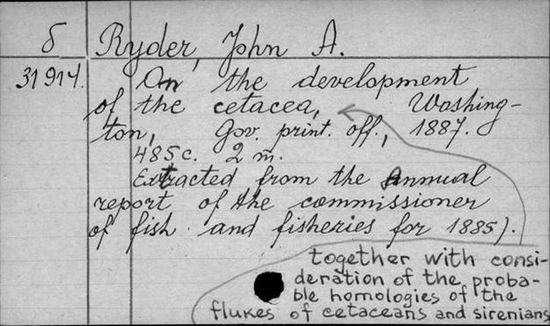 б Ryder, John A.
31914. On the development
of the cetacea, Washing-
ton, Gov. print. off., 1887.
485 c. 2 m.
Extracted from the Annual
report of the commissioner
of fish and fisheries for 1885).
together with consi-
deration of the proba-
ble homologies of the
flukes of cetaceans and sirenians